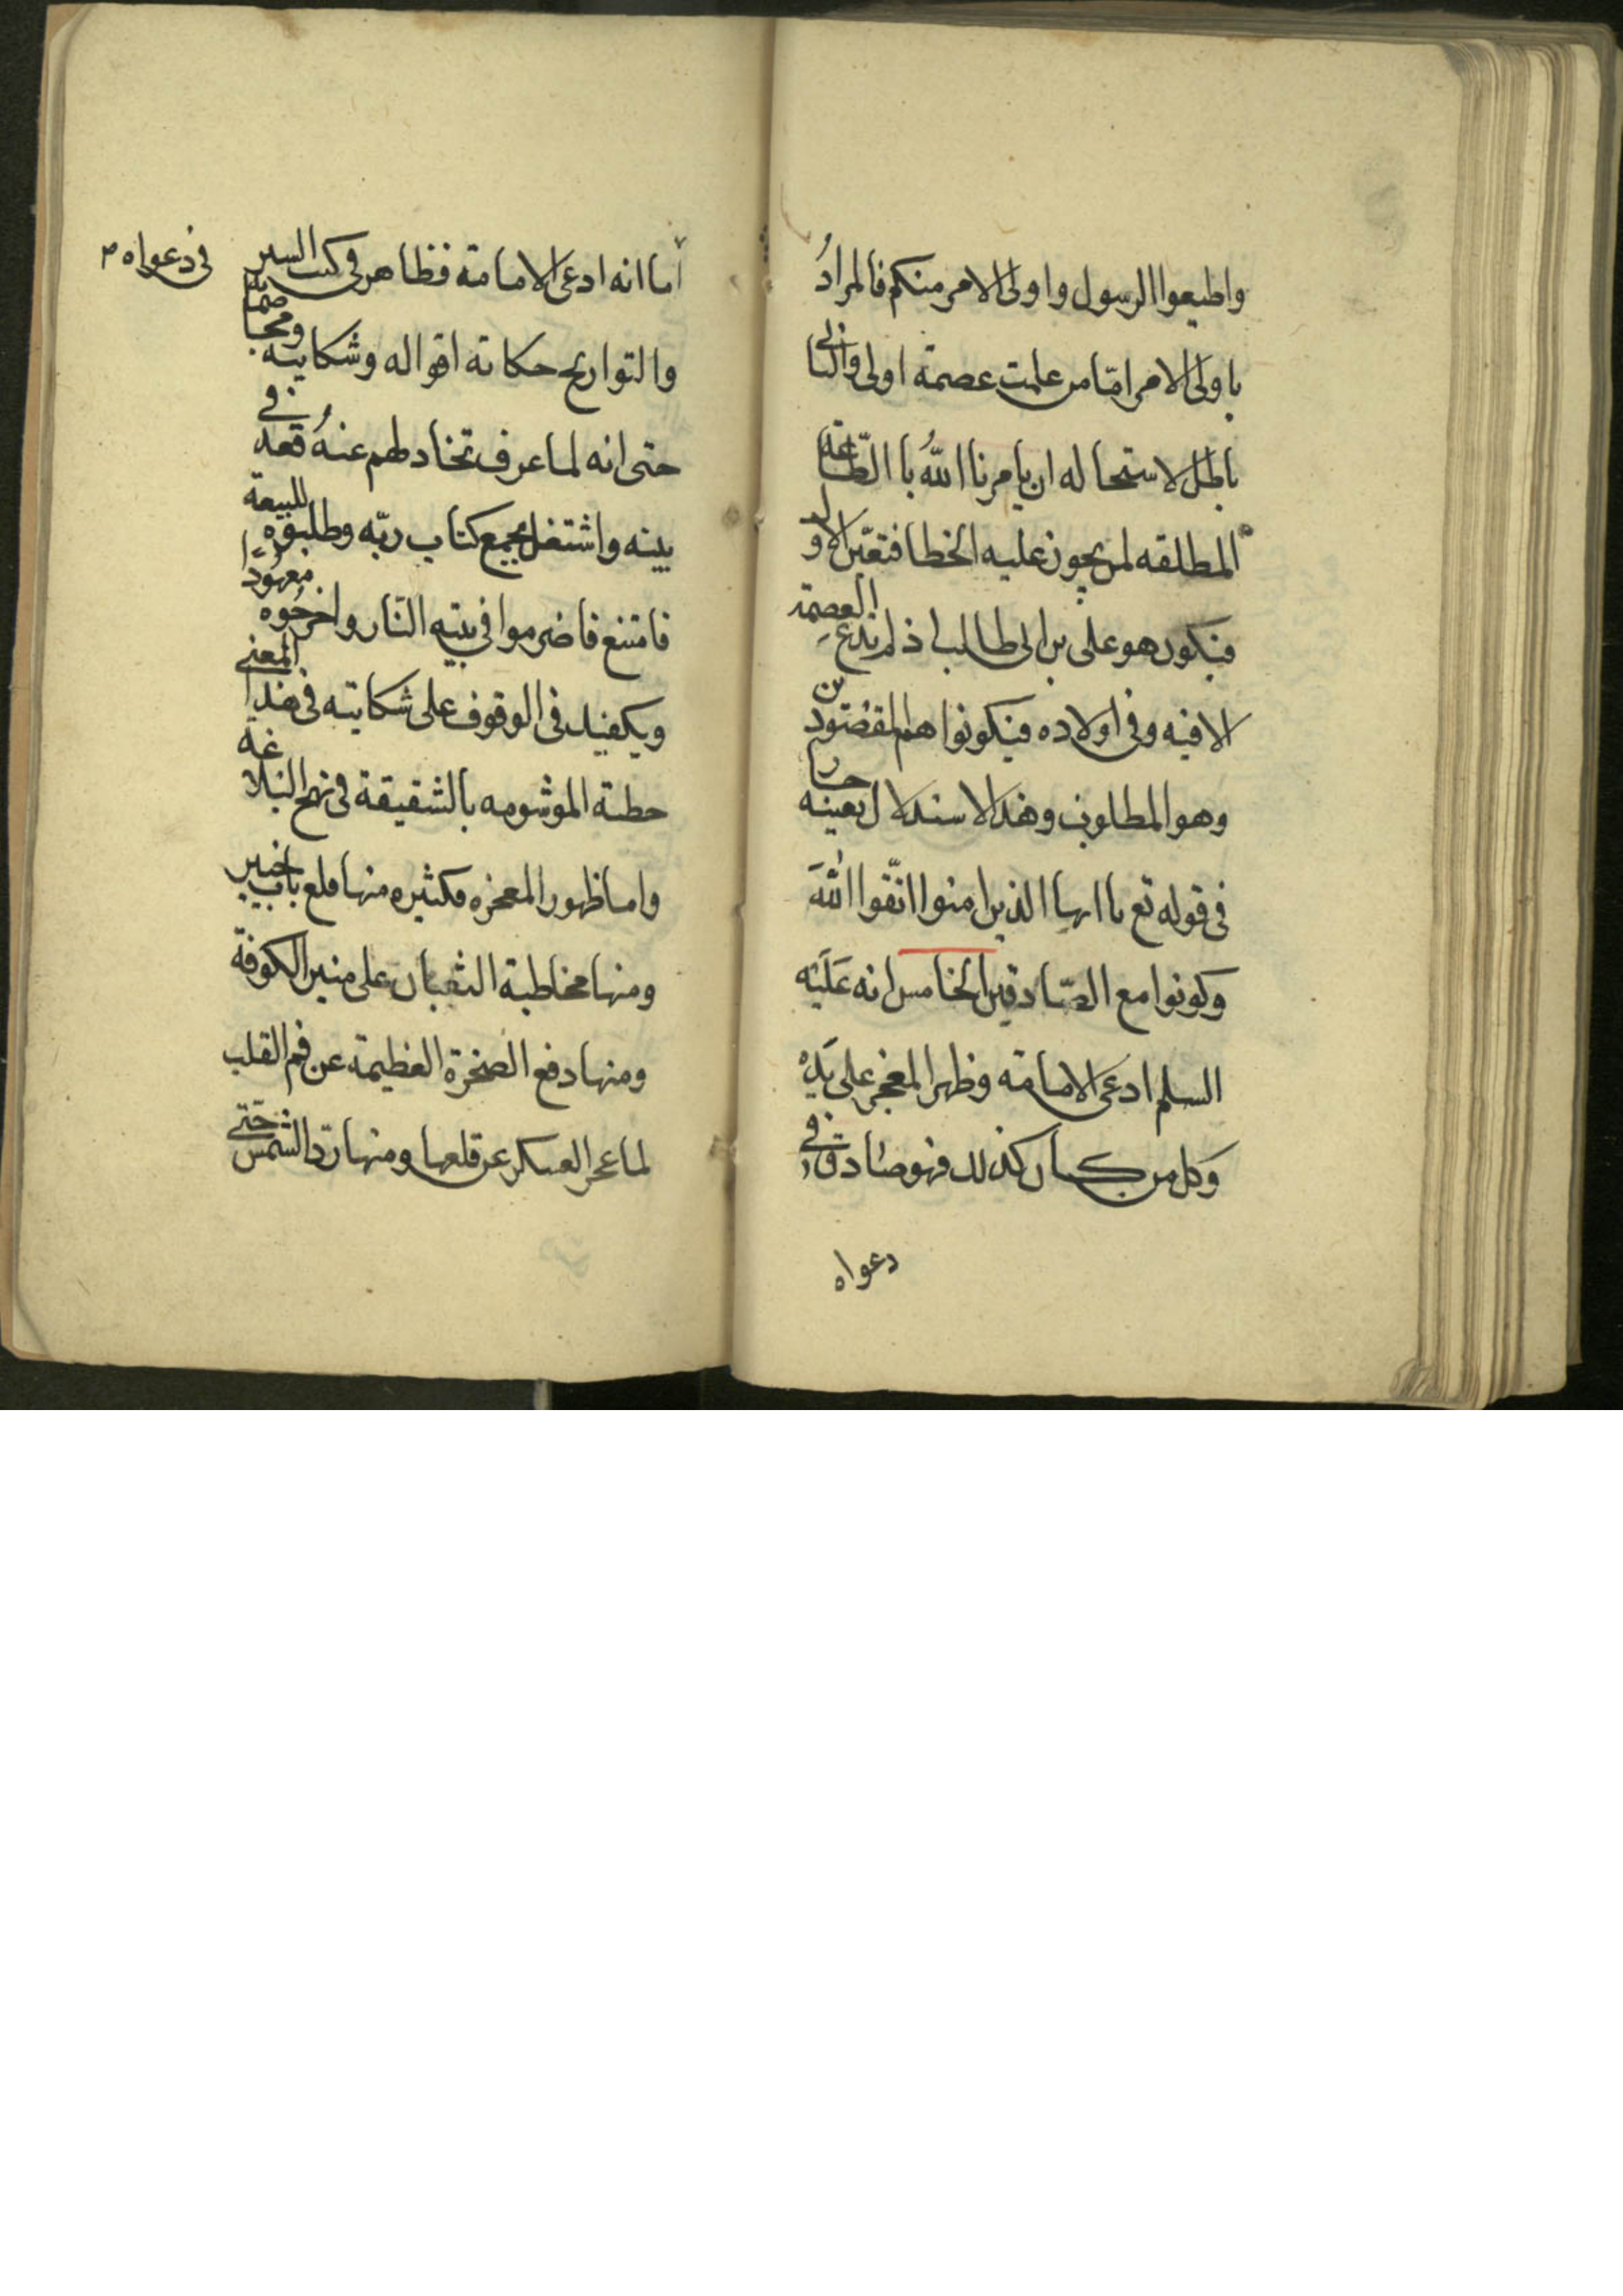 واطيعوا الرسول واولى الامر منكم فالمرادُ
باولى الامر امّا من علمت عصمة اولى والثانى
باطل لاستحاله ان يامرنا اللّهُ با الطّاعة
المطلقه لمن يجوز عليه الخطا فتعيّن الاول و
فيكون هو على بن ابى طالب اذ لم تدع العصمة
الا فيه وفى اولاده فيكونوا هم المقصودين
وهو المطلوب وهذا الاستدلال بعينه جار
فى قوله تع يا ايها الذين امنوا اتّقوا اللّهَ
وكونوا مع الصّادقين الخامس انه عَلَيْه
السلم ادعى الامامة وظهر المعجز على يَدِهْ
وكل من كان كذلك فهو صادق فى
دعواه
اما انه ادعى الامامة فظاهر فى كتب السير
فى دعواه م
والتواريخ حكاية اقواله وشكايته ومخاصماته
حتى انه لما عرف تخاذلهم عنهُ قعد فى
بيته واشتغل بجمع كتاب ربّه وطلبوه للبيعة
فامتنع فاضرموا فى بيته النّار واخرجُوه
ويكفيك فى الوقوف على شكايته فى هذا المعنى
خطبته الموسومه بالشقيقة فى نهج البلاغه
واما ظهور المعجزه فكثيره منها قلع باب خيبر
ومنها مخاطبة الثعبان على منبر الكوفة
ومنها دفع الصخرة العظيمة عن فم القلب
لما عجز العسكر عن قلعها ومنها ردّ الشمس حتى